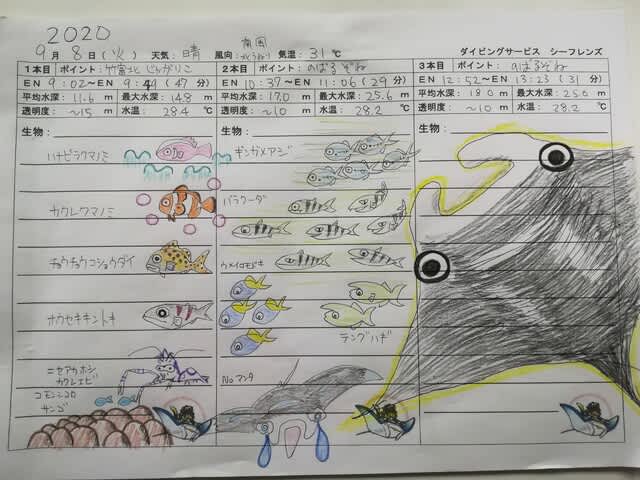 2020
9月 8日(火) 天気: 晴 風向: 南風 気温: 31℃
ダイビングサービス シーフレンズ
1本目 ポイント: 竹富北 じゃがりこ
EN 9:02～EN 9:49 (47分)
平均水深: 11.6 m 最大水深: 14.8 m
透明度: ～15 m 水温: 28.4 ℃
生物:
ハナビラクマノミ
カクレクマノミ
チョウチョウコショウダイ
ホウセキキントキ
ニセアカホシ
カクレエビ
コモンシコロ
サンゴ
2本目 ポイント: のばるぞね
EN 10:37～EN 11:06 (29分)
平均水深: 17.0 m 最大水深: 25.6 m
透明度: ～10 m 水温: 28.2 ℃
生物:
ギンガメアジ
バラクーダ
ウメイロモドキ
テングハギ
Noマンタ
3本目 ポイント: のばるぞね
EN 12:52～EN 13:23 (31分)
平均水深: 18.0 m 最大水深: 25.0 m
透明度: ～10 m 水温: 28.2 ℃
生物: